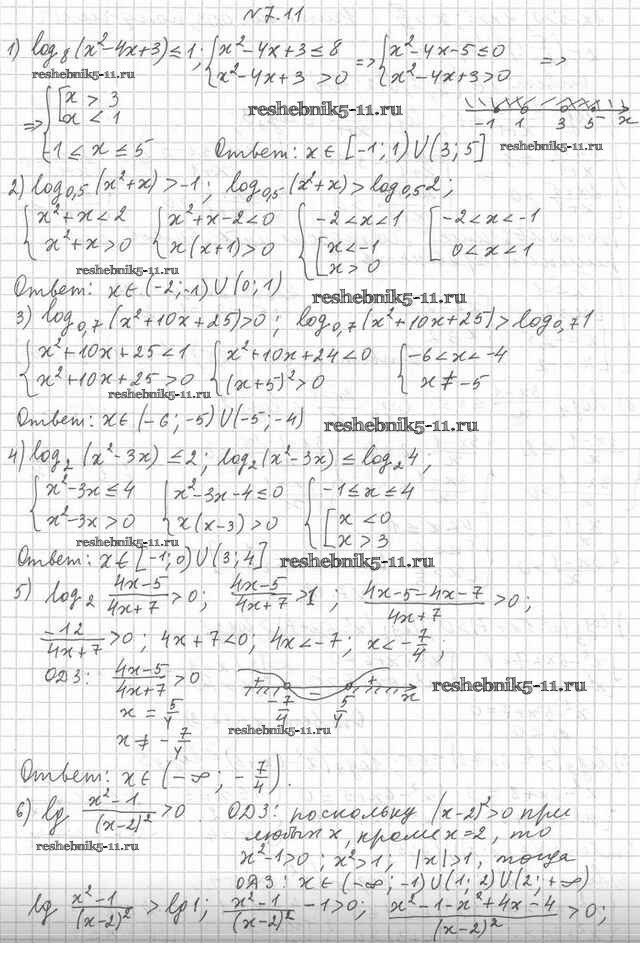 № 7.11
1) log₈(x²-4x+3)≤1; {x²-4x+3≤8 => {x²-4x-5≤0 =>
reshebnik5-11.ru {x²-4x+3>0 {x²-4x+3>0
=> {[x>3 reshebnik5-11.ru
[x<1 -1 1 3 5 x
-1≤x≤5 Ответ: x∈[-1;1)∪(3;5] reshebnik5-11.ru
2) log₀,₅(x²+x)>-1; log₀,₅(x²+x)>log₀,₅2;
{x²+x<2 {x²+x-2<0 {-2<x<1 [-2<x<-1
{x²+x>0 {x(x+1)>0 {[x<-1 [0<x<1
reshebnik5-11.ru [x>0
Ответ: x∈(-2;-1)∪(0;1) reshebnik5-11.ru
3) log₀,₇(x²+10x+25)>0; log₀,₇(x²+10x+25)>log₀,₇1
{x²+10x+25<1 {x²+10x+24<0 {-6<x<-4
{x²+10x+25>0 {(x+5)²>0 {x≠-5
reshebnik5-11.ru
Ответ: x∈(-6;-5)∪(-5;-4) reshebnik5-11.ru
4) log₂(x²-3x)≤2; log₂(x²-3x)≤log₂4;
{x²-3x≤4 {x²-3x-4≤0 {-1≤x≤4
{x²-3x>0 {x(x-3)>0 {[x<0
reshebnik5-11.ru [x>3
Ответ: x∈[-1;0)∪(3;4] reshebnik5-11.ru
5) log₂ (4x-5)/(4x+7)>0; (4x-5)/(4x+7)>1; (4x-5-4x-7)/(4x+7)>0;
-12/(4x+7)>0; 4x+7<0; 4x<-7; x<-7/4;
ОДЗ: (4x-5)/(4x+7)>0 + - + x reshebnik5-11.ru
x=5/4 -7/4 5/4
x≠-7/4 reshebnik5-11.ru
Ответ: x∈(-∞;-7/4).
6) lg (x²-1)/(x-2)²>0. ОДЗ: поскольку (x-2)²>0 при
reshebnik5-11.ru любых x, кроме x=2, то
x²-1>0; x²>1; |x|>1, тогда
ОДЗ: x∈(-∞;-1)∪(1;2)∪(2;+∞)
lg (x²-1)/(x-2)²>lg1; (x²-1)/(x-2)²-1>0; (x²-1-x²+4x-4)/(x-2)²>0;